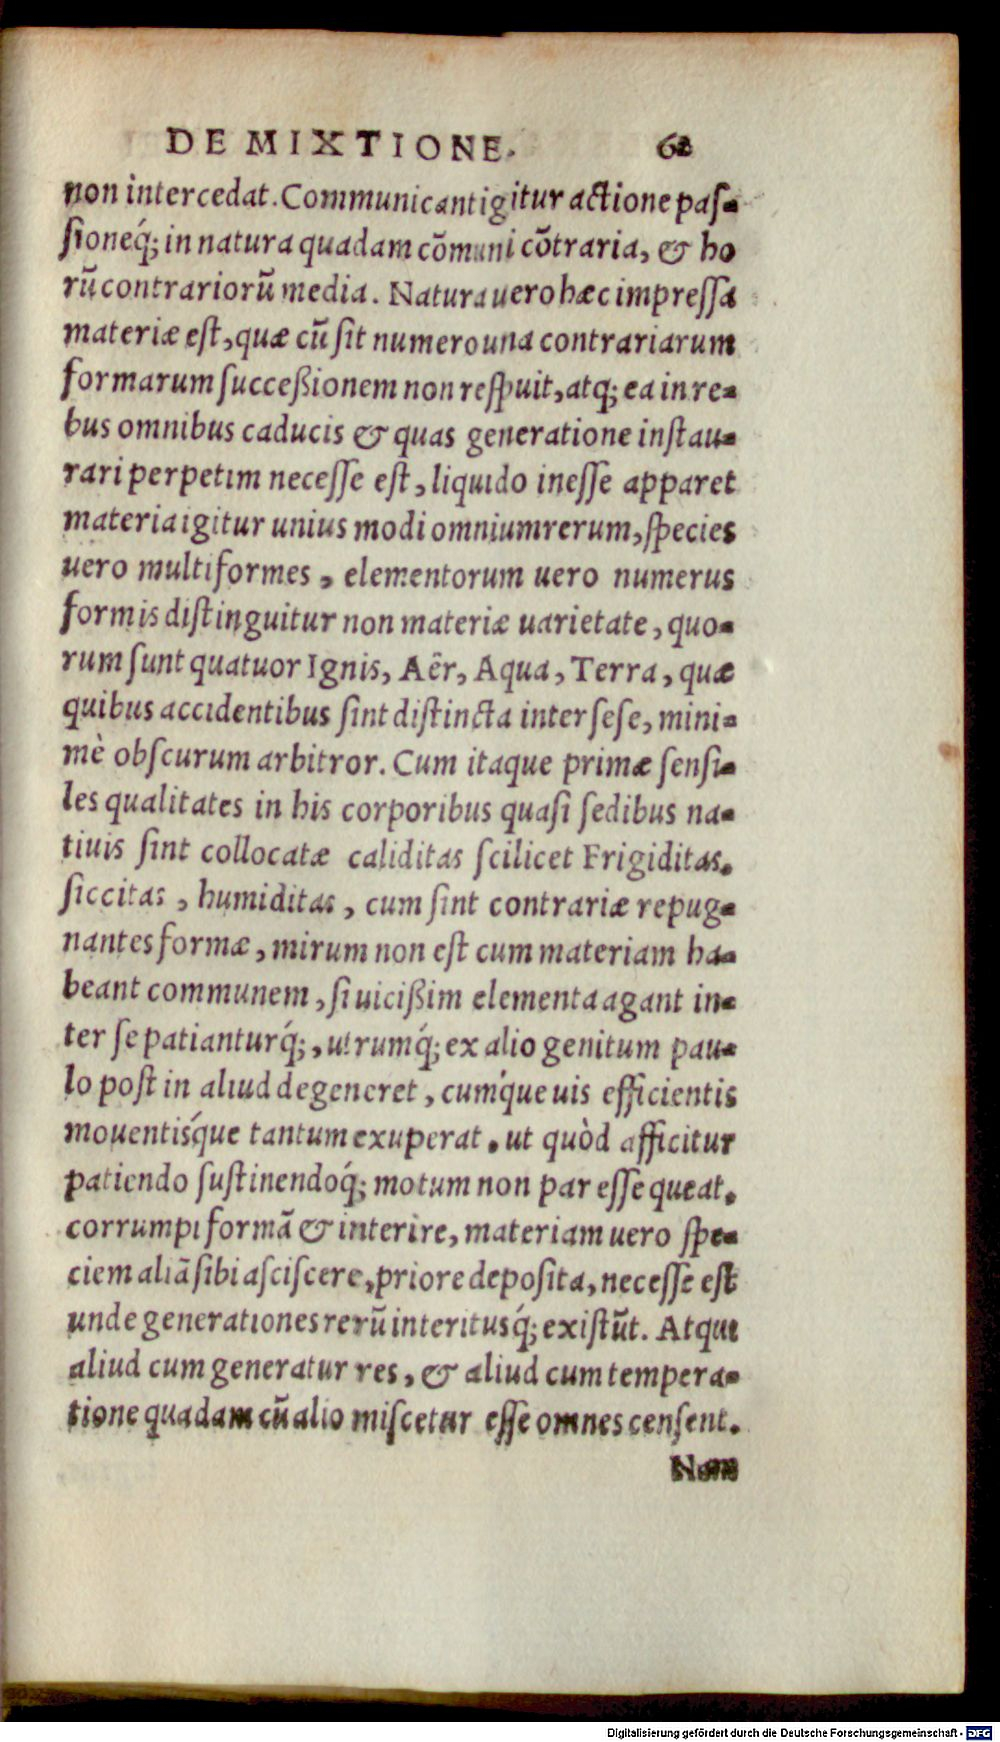 DE MIXTIONE. 62
non intercedat. Communicant igitur actione pas-
sioneq́; in natura quadam cõmuni cõtraria, & ho
rũ contrariorũ media. Natura uero hæc impressa
materiæ est, quæ cũ sit numero una contrariarum
formarum succeßionem non respuit, atq; ea in re-
bus omnibus caducis & quas generatione instau-
rari perpetim necesse est, liquido inesse apparet
materia igitur unius modi omnium rerum, species
uero multiformes, elementorum uero numerus
formis distinguitur non materiæ uarietate, quo-
rum sunt quatuor Ignis, Aêr, Aqua, Terra, quæ
quibus accidentibus sint distincta inter sese, mini-
mè obscurum arbitror. Cum itaque primæ sensi-
les qualitates in his corporibus quasi sedibus na-
tiuis sint collocatæ caliditas scilicet Frigiditas.
siccitas, humiditas, cum sint contrariæ repug-
nantes formæ, mirum non est cum materiam ha-
beant communem, si uicißim elementa agant in-
ter se patianturq́;, utrumq́; ex alio genitum pau-
lo post in aliud degeneret, cuḿque uis efficientis
mouentisq́ue tantum exuperat. ut quòd afficitur
patiendo sustinendoq́; motum non par esse queat.
corrumpi formã & interire, materiam uero spe-
ciem aliã sibi asciscere, priore deposita, necesse est
unde generationes rerũ interitusq́; existũt. Atqui
aliud cum generatur res, & aliud cum tempera-
tione quadam cũ alio miscetur esse omnes censent.
Nam
Digitalisierung gefördert durch die Deutsche Forschungsgemeinschaft - DFG